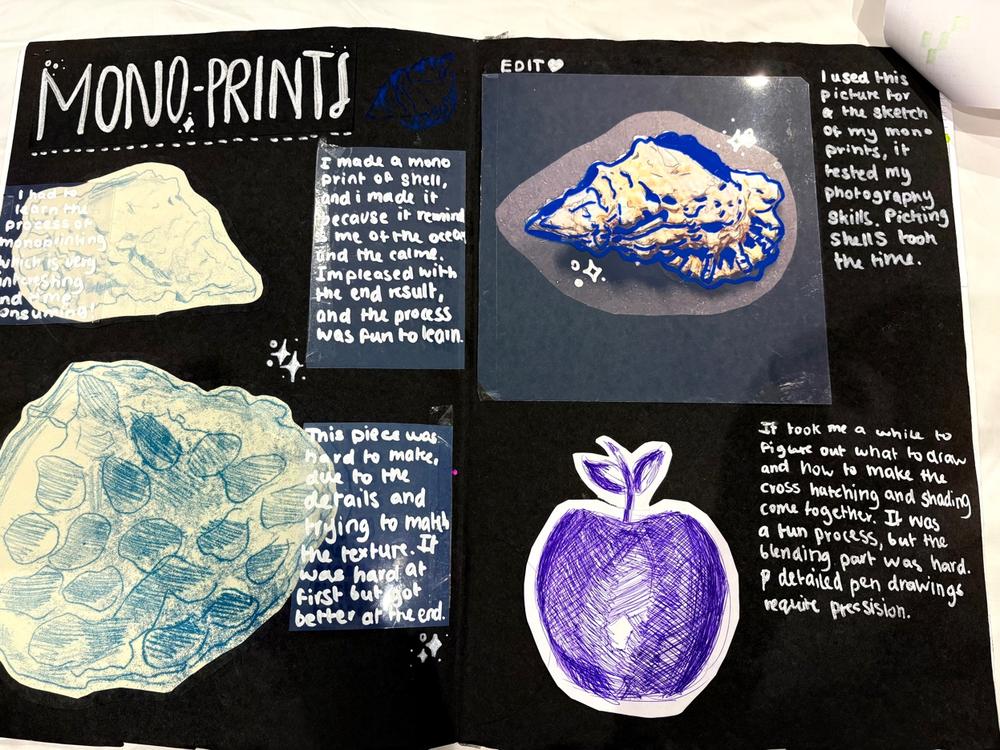 MONO-PRINTS
I had to
learn the
process of
monoprinting
which is very
interesting
nd time
onsuming!
I made a mono
print of shell,
and i made it
because it remind
s me of the ocean
and the calme.
Impleased with
the end result,
and the process
was fun to learn.
This piece was
hard to make,
due to the
details and
trying to match
the texture. It
was hard at
first but got
better at the end.
EDIT
I used this
picture for
a the sketch
of my mono
prints, it
tested my
photography
skills. Picking
shells took
the time.
It took me a while to
figure out what to draw
and how to make the
cross hatching and shading
come together. It was
a fun process, but the
blending part was hard.
P detailed pen drawings
require pressision.